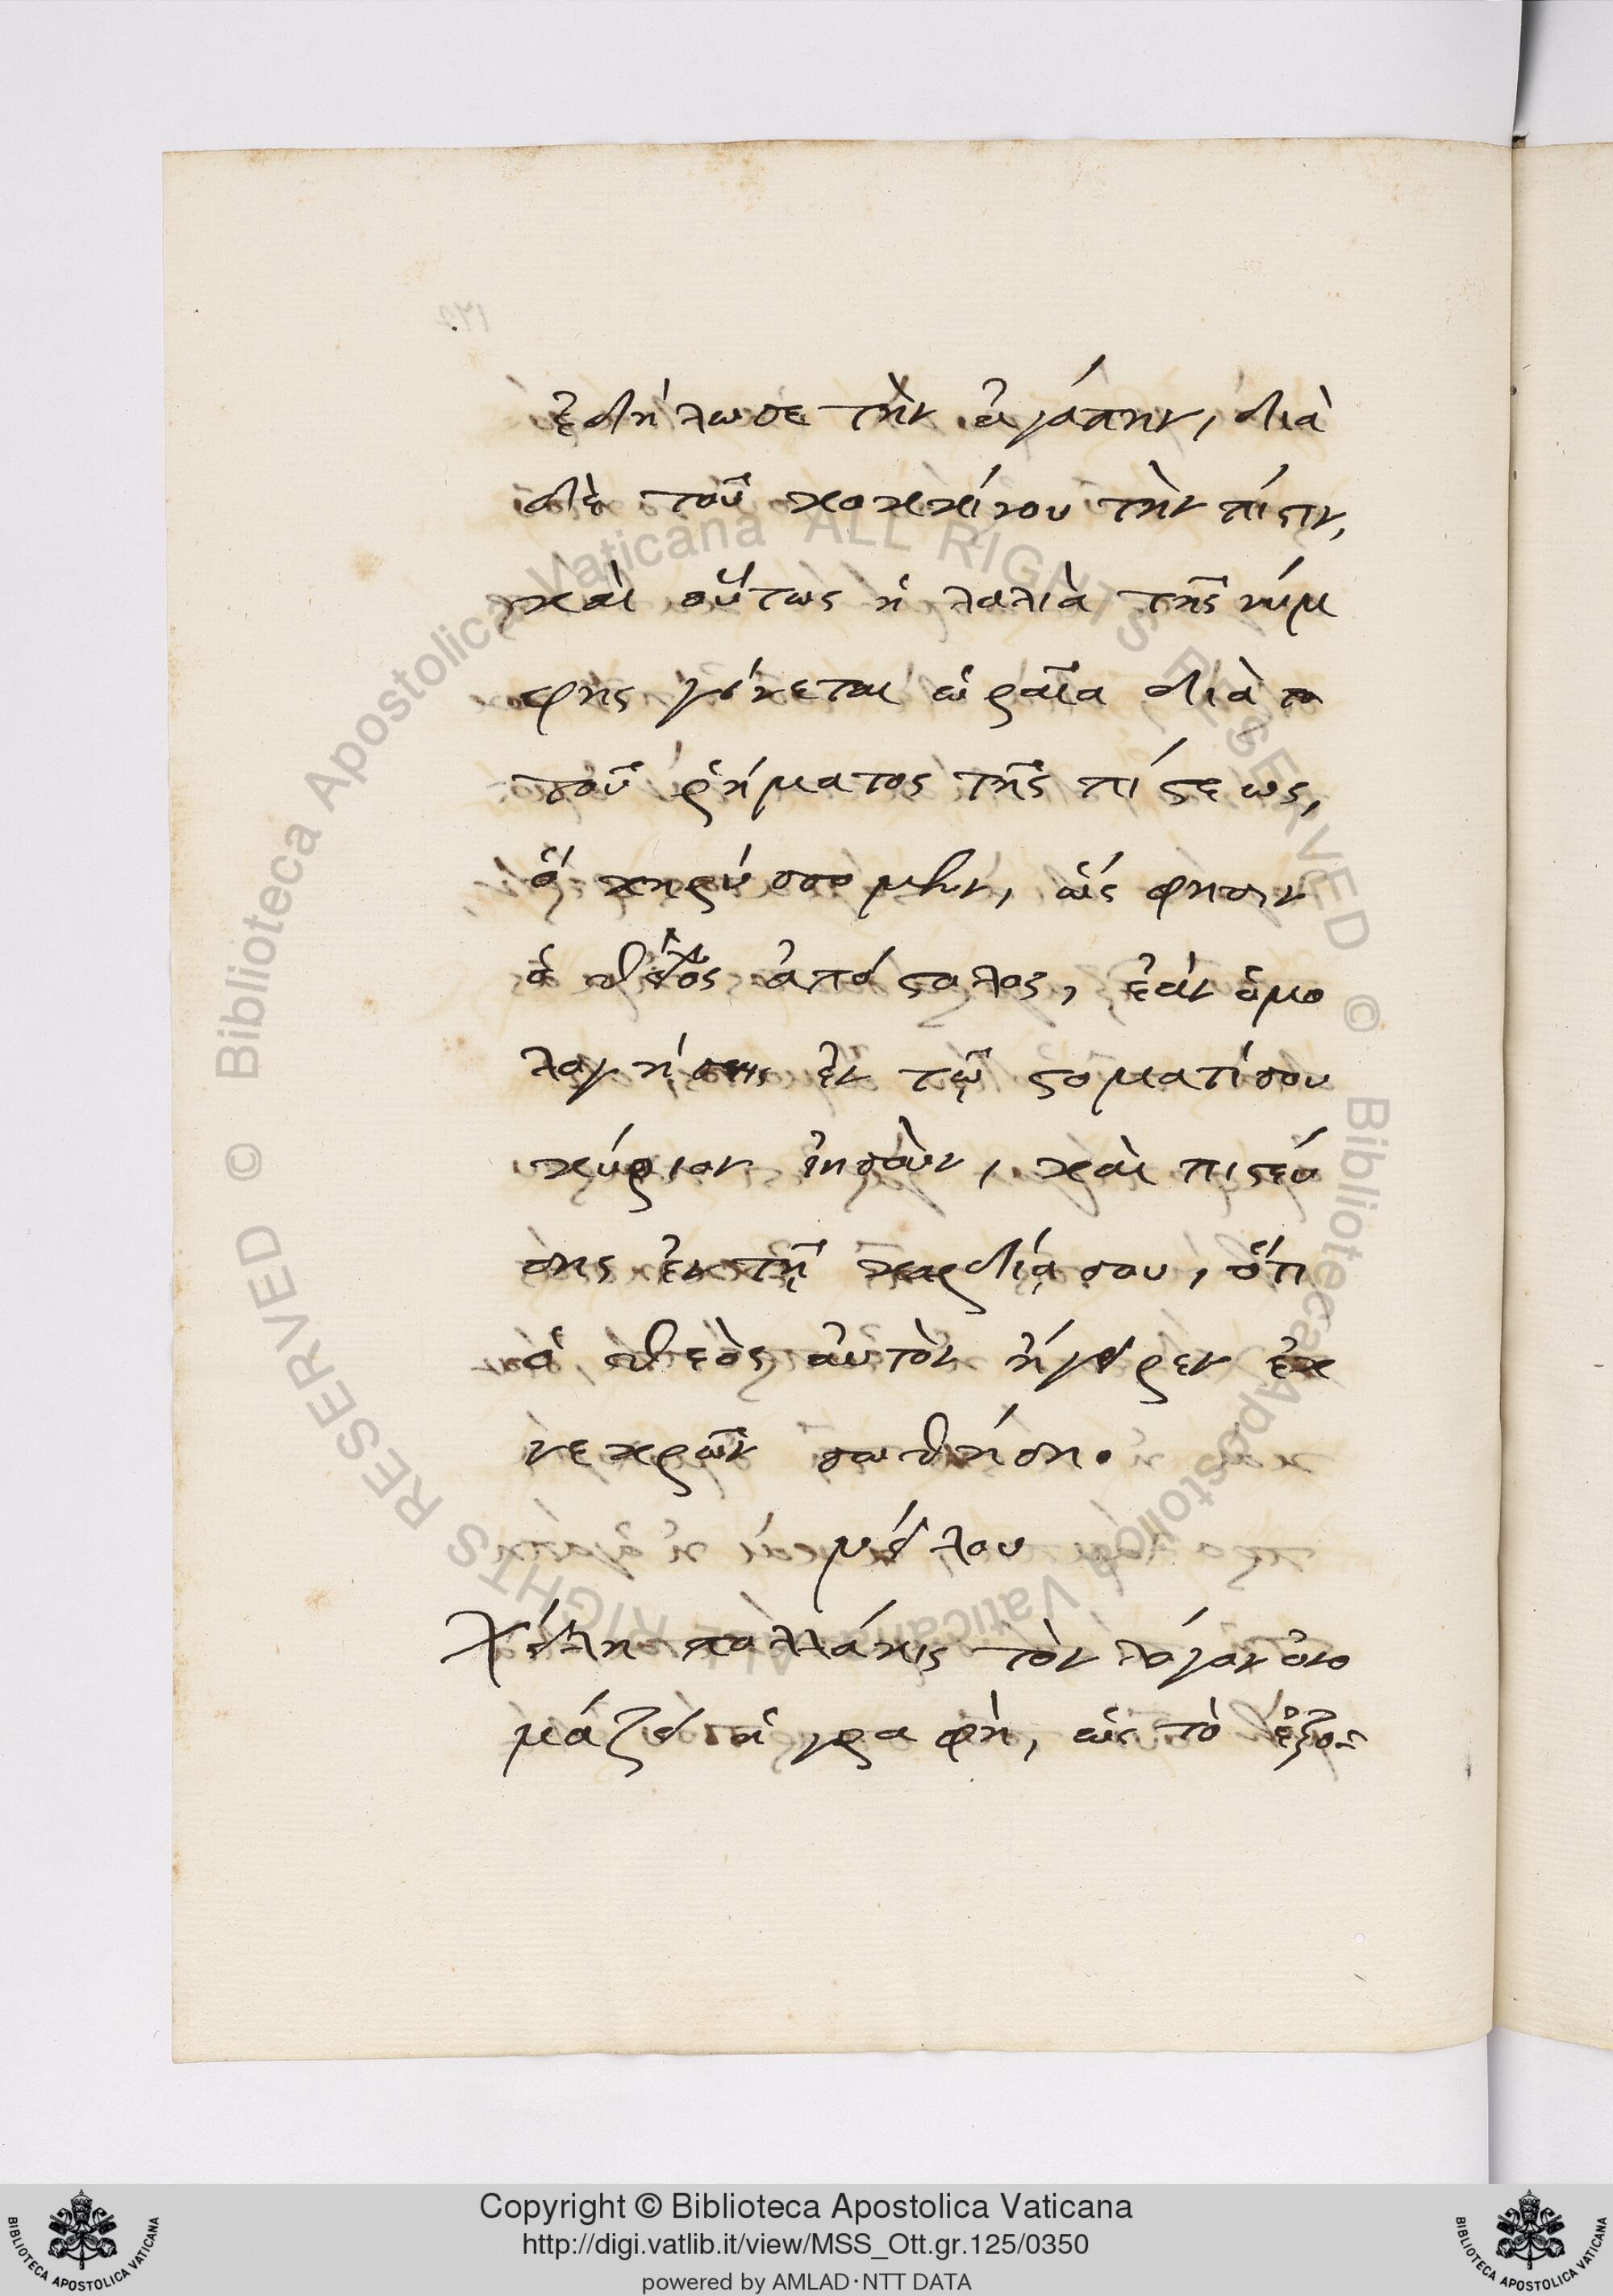 ἐδήλωσε τὴν ἀγάπην, διὰ
δὲ τοῦ κοκκίνου τὴν πίστιν,
καὶ οὕτως ἡ λαλιὰ τῆς νύμ
φης γίνεται ὡραῖα διὰ το
τοῦ ῥήματος τῆς πίστεως,
ὃ κηρύσσομεν, ὥς φησιν
ὁ θεῖος ἀπόστολος, ἐὰν ὁμο
λογήσῃς ἐν τῷ στόματί σου
κύριον ἰησοῦν, καὶ πιστεύ
σῃς ἐν τῇ καρδίᾳ σου, ὅτι
ὁ θεὸς αὐτὸν ἤγειρεν ἐκ
νεκρῶν σωθήσῃ.
νείλου
Χείλη πολλάκις τὸν λόγον ὀνο
μάζει ἡ γραφὴ, ὡς τὸ
Biblioteca Apostolica Vaticana ALL RIGHTS RESERVED ©
Biblioteca Apostolica Vaticana ALL RIGHTS RESERVED ©
Copyright © Biblioteca Apostolica Vaticana
http://digi.vatlib.it/view/MSS_Ott.gr.125/0350
powered by AMLAD·NTT DATA
BIBLIOTECA APOSTOLICA VATICANA
BIBLIOTECA APOSTOLICA VATICANA